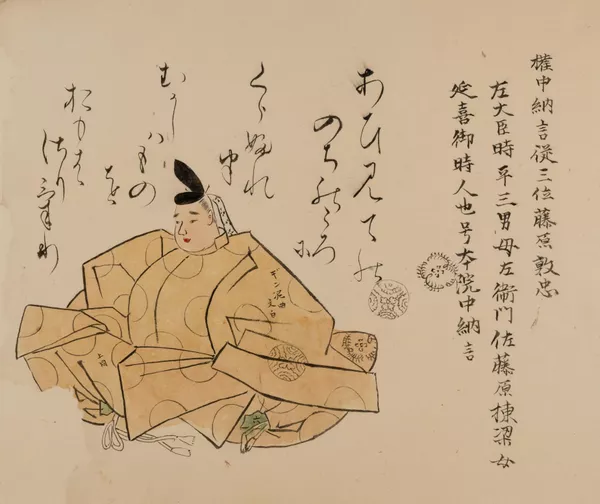 權中納言從三位藤原敦忠
左大臣時平三男母左衛門佐藤原棟梁女
延喜御時人也号夲院中納言
あひ見ての
のちのこゝろに
くらふれ
は
むかしハもの
を
おもは
さりけり